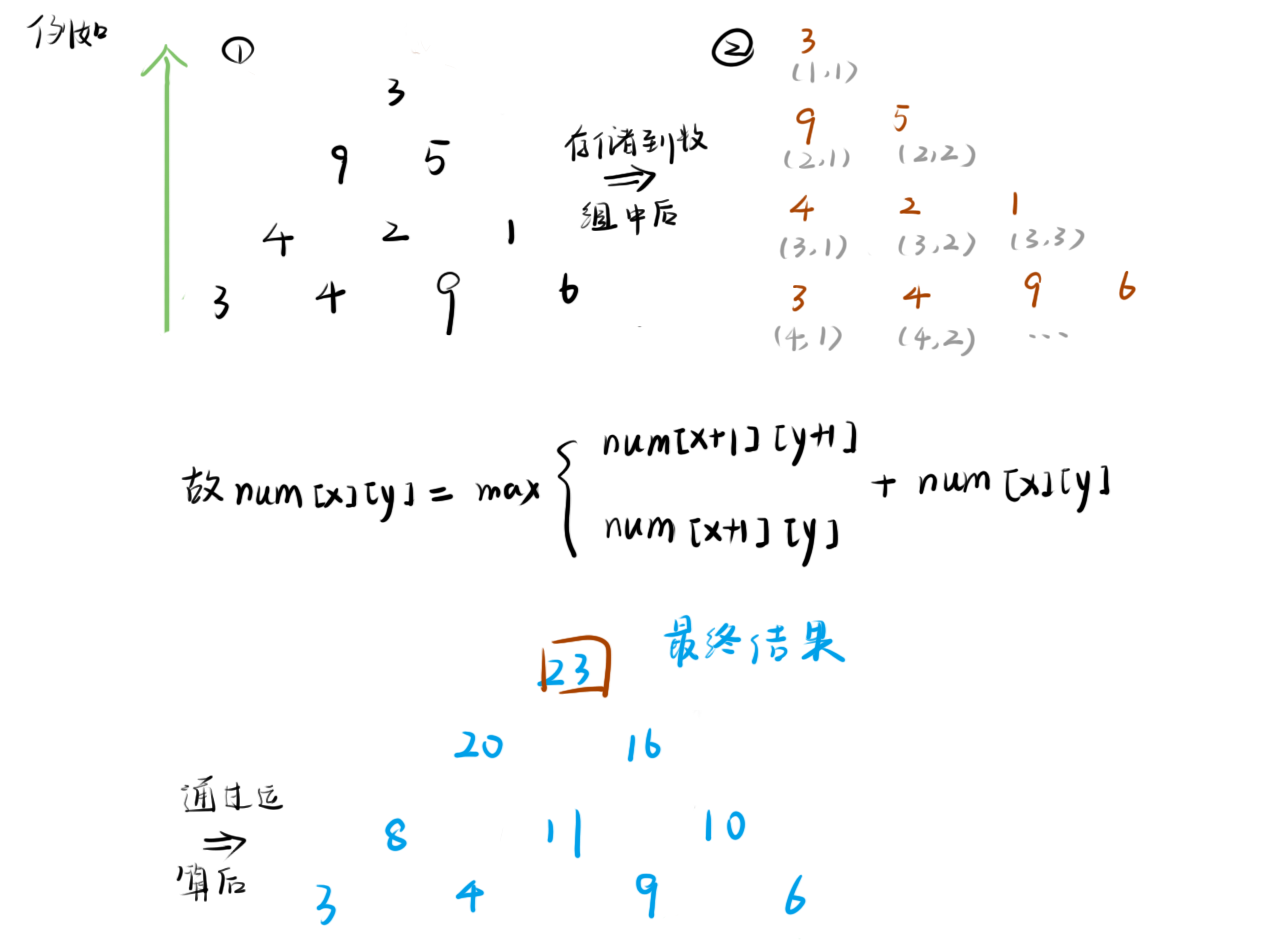 例如
①
3
9 5
4 2 1
3 4 9 6
存储到数
⇒
组中后
②
3
(1,1)
9 5
(2,1) (2,2)
4 2 1
(3,1) (3,2) (3,3)
3 4 9 6
(4,1) (4,2) ...
故 num[x][y] = max { num[x+1][y+1]
num[x+1][y] + num[x][y]
23 最终结果
20 16
通过运
⇒
算后
8 11 10
3 4 9 6